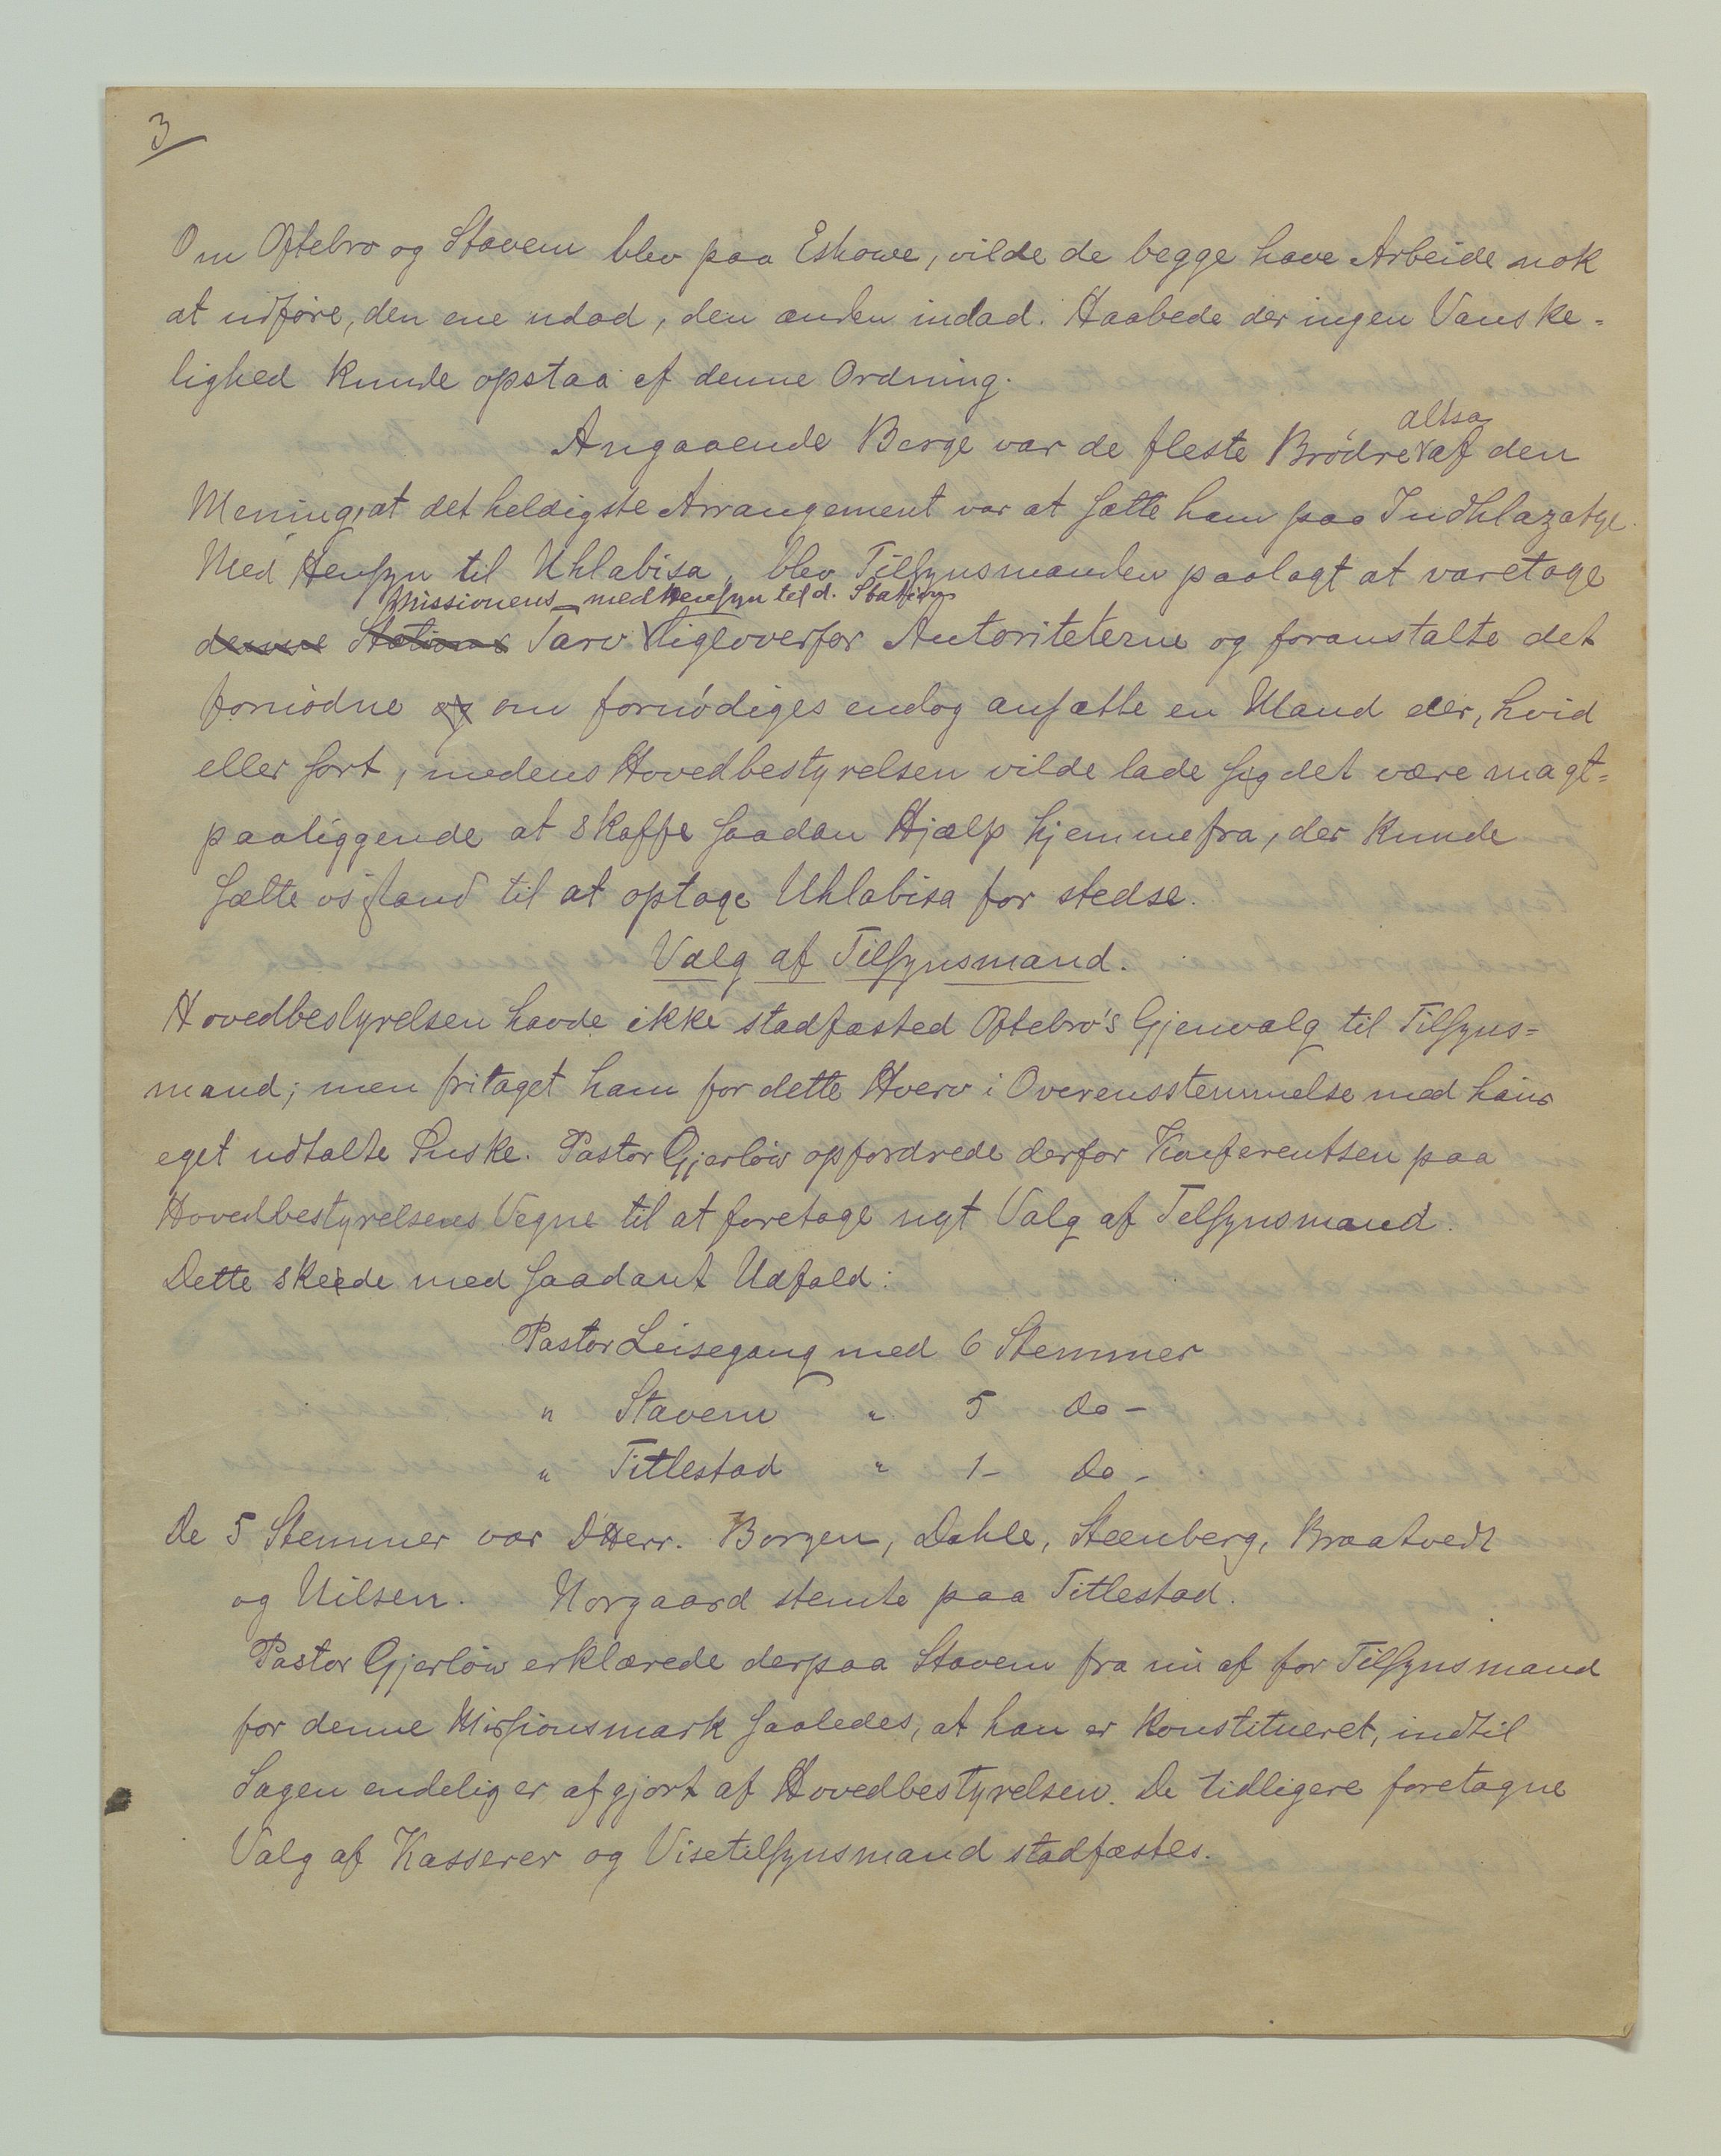 3
Om Oftebro og Stavem blev paa Eshowe, vilde de begge have Arbeide nok
at udføre, den ene udad, den anden indad. Haabede der ingen Vanske=
lighed kunde opstaa af denne Ordning.
altsa
Angaaende Berge var de fleste Brødre af den
Mening, at det heldigste Arrangement var at sætte ham paa Indhlazatye.
Med Hensyn til Uhlabisa, blev Tilsynsmanden paalagt at varetage
Missionens med Hensyn til d. Station
denne Stations Tarv ligeoverfor Autoriteterne og foranstalte det
fornødne og om fornødiges endog ansætte en Mand der, hvid
eller sort, medens Hovedbestyrelsen vilde lade sig det være magt=
paaliggende at skaffe saadan Hjælp hjemmefra, der kunde
sætte os istand til at optage Uhlabisa for stedse.
Valg af Tilsynsmand.
Hovedbestyrelsen havde ikke stadfæsted Oftebro's Gjenvalg til Tilsyns=
mand; men fritaget ham for dette Hverv i Overensstemmelse med hans
eget udtalte Ønske. Pastor Gjerløw opfordrede derfor Konferentsen paa
Hovedbestyrelsens Vegne til at foretage nyt Valg af Tilsynsmand.
Dette skede med saadant Udfald:
Pastor Leisegang med 6 Stemmer
" Stavem " 5 Do -
" Titlestad " 1 - Do -
De 5 Stemmer var DHerr. Borgen, Dahle, Steenberg, Braatvedt
og Nilsen. Norgaard stemte paa Titlestad.
Pastor Gjerløw erklærede derpaa Stavem fra nu af for Tilsynsmand
for denne Missionsmark saaledes, at han er konstitueret, indtil
Sagen endelig er afgjort af Hovedbestyrelsen. De tidligere foretagne
Valg af Kasserer og Visetilsynsmand stadfæstes.